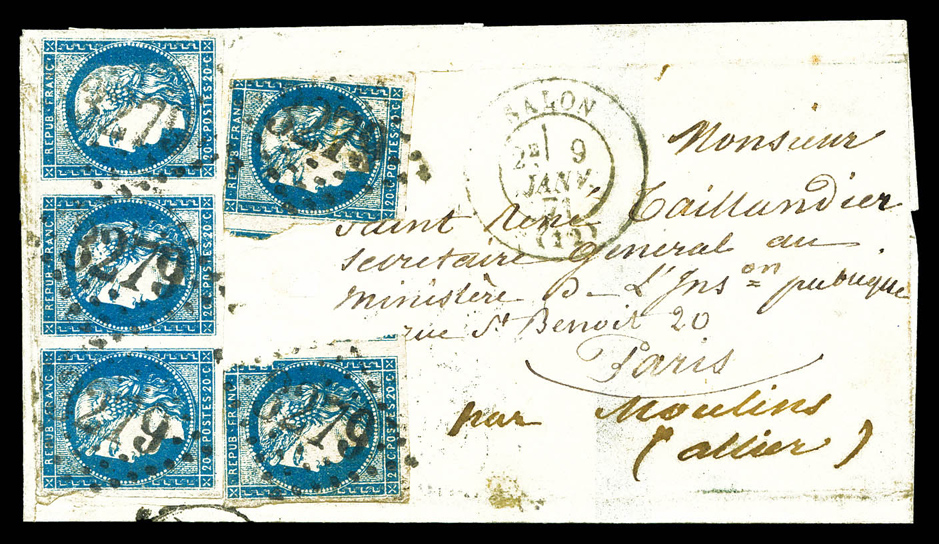 REPUB·FRANC·
20·C·POSTES·20·C·
3279
REPUB·FRANC·
20·C·POSTES·20·C·
3279
REPUB·FRANC·
20·C·POSTES·20·C·
3279
REPUB·FRANC·
3279
REPUB·FRANC·
20·C·POSTES·20·C·
3279
SALON
2E 9
JANV.
71
(12)
Monsieur
Saint René Taillandier
Secretaire General au
Ministère D_ L'Ins^on publique
rue St Benoit 20
Paris
par Moulins
(allier)